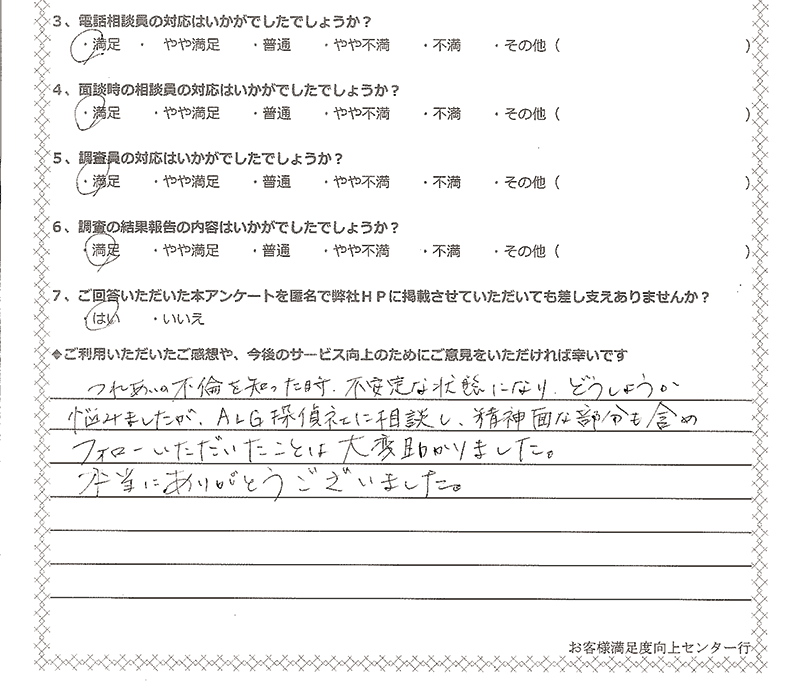 3、電話相談員の対応はいかがでしたでしょうか？
・満足　・　やや満足　・普通　・やや不満　・不満　・その他（　）
4、面談時の相談員の対応はいかがでしたでしょうか？
・満足　・やや満足　・普通　・やや不満　・不満　・その他（　）
5、調査員の対応はいかがでしたでしょうか？
・満足　・やや満足　・普通　・やや不満　・不満　・その他（　）
6、調査の結果報告の内容はいかがでしたでしょうか？
・満足　・やや満足　・普通　・やや不満　・不満　・その他（　）
7、ご回答いただいた本アンケートを匿名で弊社ＨＰに掲載させていただいても差し支えありませんか？
・はい　・いいえ
◆ご利用いただいたご感想や、今後のサービス向上のためにご意見をいただければ幸いです
つれあいの不倫を知った時、不安定な状態になり、どうしょうか
悩みましたが、ALG探偵社に相談し、精神面な部分も含め
フォローいただいたことは大変助かりました。
本当にありがとうございました。
お客様満足度向上センター行